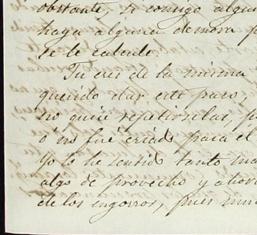 obstante, si consigo algun
haya alguna demora p
se le calcule.
Tu eres de la misma
querido dar este paso;
no quise repetirselas, p
ó no fué criado para el
yo le he sentido tanto ma
algo de provecho y ahora
de los engorros, pues